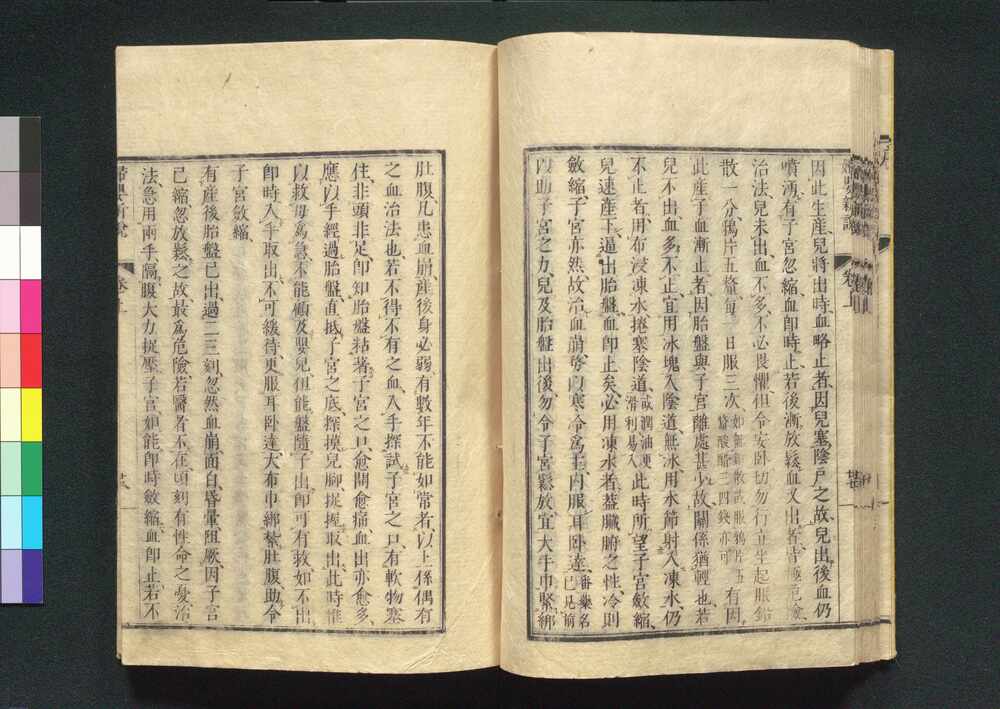 因此生產兒將出時血略止者因兒塞陰戶之故兒出後血仍
噴湧有子宮忽縮血卽時止若後漸放鬆血又出者皆極危險
治法兒未出血不多不必畏懼但令安臥切勿行立坐起服鉛
散一分鴉片五釐每一日服三次如無鉛散或服鴉片五釐酸醋三四錢亦可有因
此產子血漸止者因胎盤與子宮離處甚少故關係猶輕也若
兒不出血多不止宜用冰塊入陰道無冰用水節射入凍水仍
不止者用布浸凍水捲塞陰道或潤油便滑利易入此時所望子宮斂縮
兒速產下逼出胎盤血卽止矣必用凍水者蓋臟腑之性冷則
斂縮子宮亦然故治血崩務以寒冷為主內服耳臥達番藥名已見前
以助子宮之力兒及胎盤出後勿令子宮鬆放宜大手巾緊綁
肚腹凡患血崩產後身必弱有數年不能如常者以上係偶有
之血治法也若不得不有之血入手探試子宮之口有軟物塞
住非頭非足卽知胎盤粘著子宮之口愈開愈痛血出亦愈多
應以手經過胎盤直抵子宮之底探摸兒腳捉握取出此時惟
以救母為急不能顧及嬰兒但能盤隨子出卽可有救如不出
卽時入手取出不可緩待更服耳臥達大布巾綁紮肚腹助令
子宮斂縮
有產後胎盤已出過二三刻忽然血崩面白昏暈阻厥因子宮
已縮忽放鬆之故最為危險若醫者不在頃刻有性命之憂治
法急用兩手隔腹大力捉壓子宮如能卽時斂縮血卽止若不
婦嬰新說